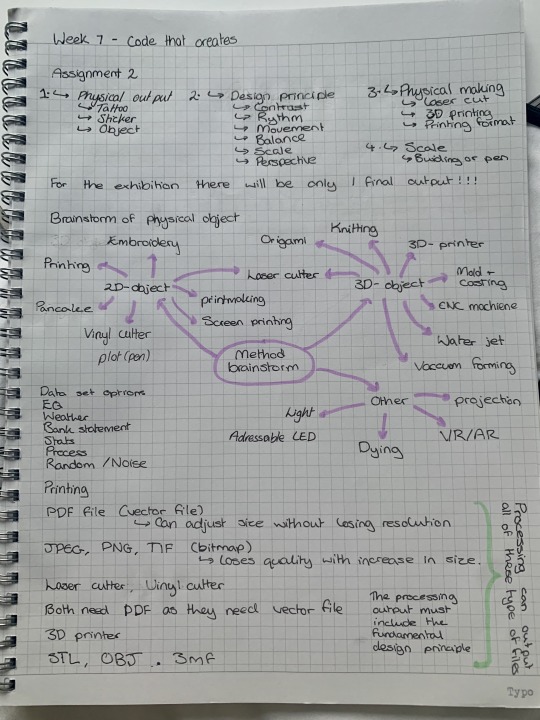 Week 7 - Code that creates
Assignment 2
1. ↳ Physical output
↳ Tattoo
↳ Sticker
↳ Object
2. ↳ Design principle
↳ Contrast
↳ Rythm
↳ Movement
↳ Balance
↳ Scale
↳ Perspective
3. ↳ Physical making
↳ Laser cut
↳ 3D printing
↳ Printing format
4. ↳ Scale
↳ Building or pen
For the exhibition there will be only 1 final output!!!
Brainstorm of physical object
Embroidery
Printing
2D-object
Pancake
Vinyl cutter
plot (pen)
Laser cutter
printmaking
Screen printing
Origami
Knitting
3D-printer
3D-object
Mold + casting
CNC machiene
Water jet
Vaccum forming
Method
brainstorm
Other
projection
Light
Adressable LED
Dying
VR/AR
Data set options
EG
Weather
Bank statement
Stats
Process
Random / Noise
Printing
PDF file (vector file)
↳ Can adjust size without losing resolution
JPEG, PNG, TIF (bitmap)
↳ Loses quality with increase in size.
Laser cutter, Vinyl cutter
Both need PDF as they need vector file
3D printer
STL, OBJ .. 3mf
The processing
output must
include the
fundamental
design principle
Processing can output
all of these type of files
Typo